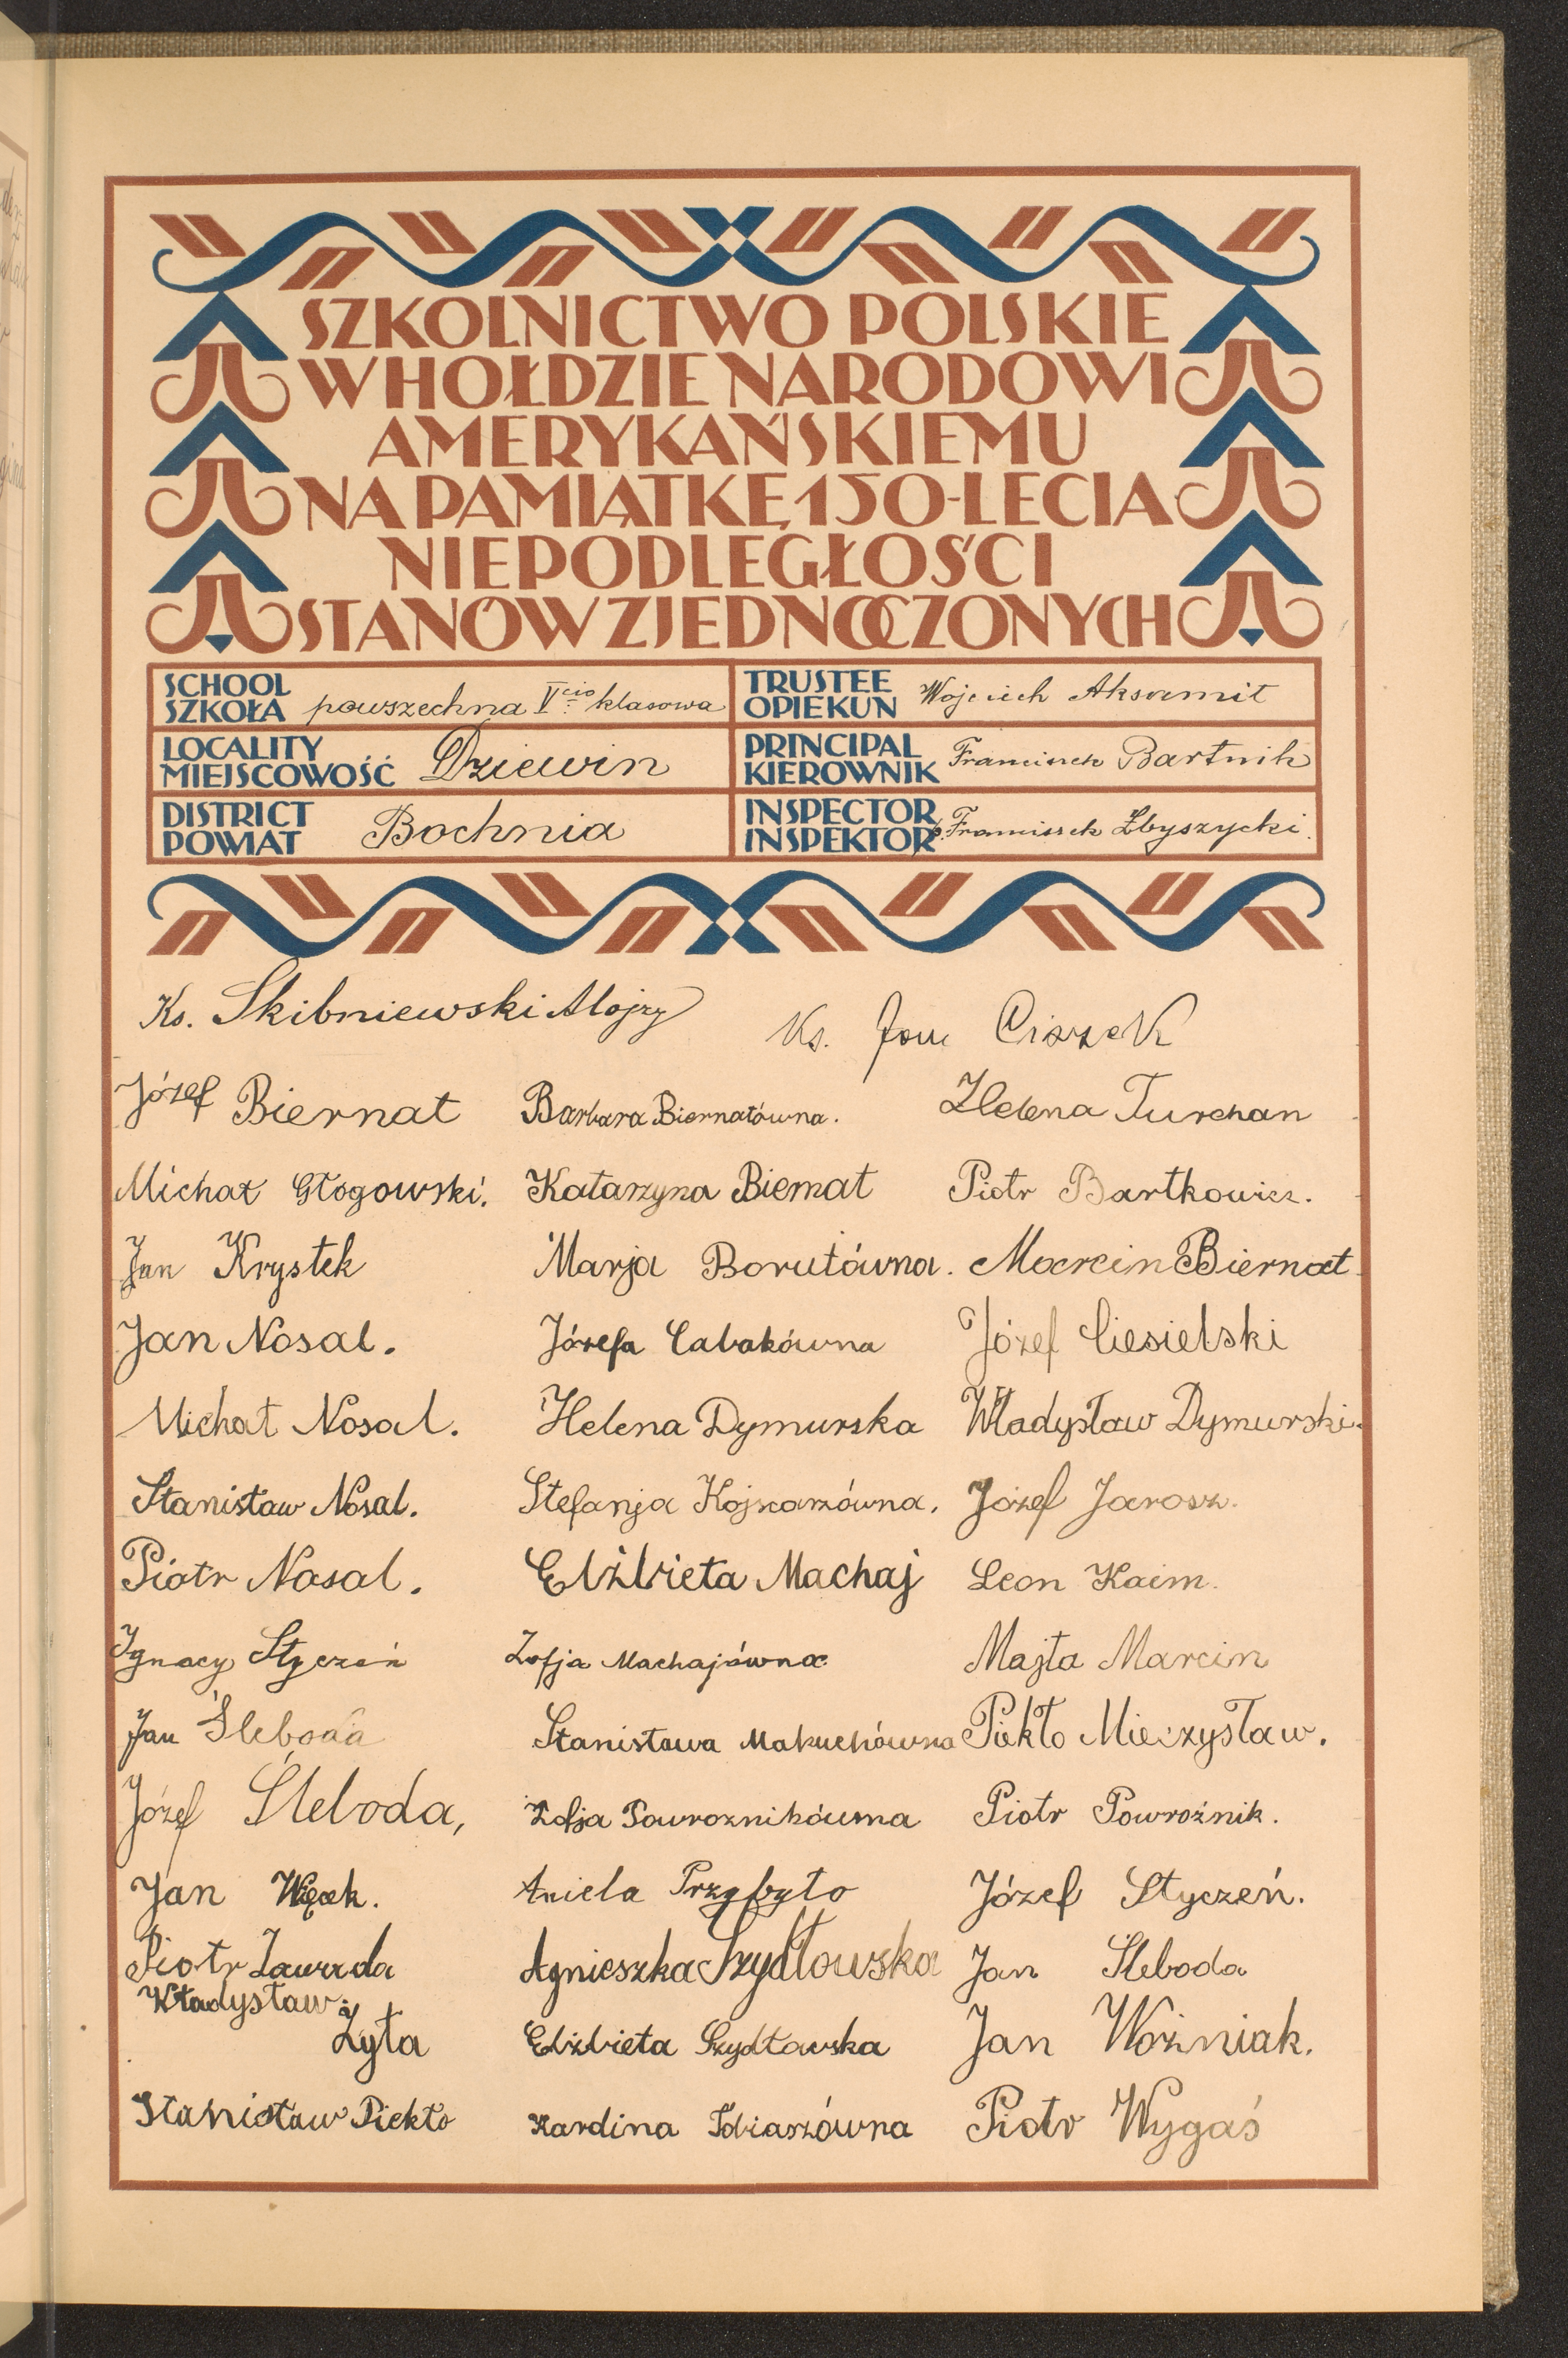 SZKOLNICTWO POLSKIE
W HOŁDZIE NARODOWI
AMERYKAŃSKIEMU
NA PAMIĄTKĘ 150-LECIA
NIEPODLEGŁOŚCI
STANÓW ZJEDNOCZONYCH
SCHOOL
SZKOŁA powszechna V cio klasowa
TRUSTEE
OPIEKUN Wojciech Aksamit
LOCALITY
MIEJSCOWOŚĆ Dziewin
PRINCIPAL
KIEROWNIK Franciszek Bartnik
DISTRICT
POWIAT Bochnia
INSPECTOR
INSPEKTOR p. Franciszek Zbyszycki.
Ks. Skibniewski Alojzy
Ks. Jan Ciszek
Józef Biernat
Barbara Biernatówna.
Helena Turchan
Michał Głogowski.
Katarzyna Biernat
Piotr Bartkowicz.
Jan Krystek
Marja Borutówna.
Marcin Biernat.
Jan Nosal.
Józefa Cabakówna
Józef Ciesielski
Michał Nosal.
Helena Dymurska
Władysław Dymurski.
Stanisław Nosal.
Stefanja
Józef Jarosz.
Piotr Nosal.
Elżbieta Machaj
Leon Kaim.
Ignacy Styczeń
Zofja Machajówna
Majta Marcin
Jan Śleboda
Stanisława Makuchówna
Piekło Mieczysław.
Józef Śleboda,
Zofja Powroznikówna
Piotr Powroźnik.
Jan Więcek.
Aniela Przybyło
Józef Styczeń.
Piotr Zawada
Agnieszka Szydłowska
Jan Śleboda
Władysław
Żyła
Elżbieta Szydłowska
Jan Woźniak.
Stanisław Piekło
Tobiaszówna
Piotr Wygaś